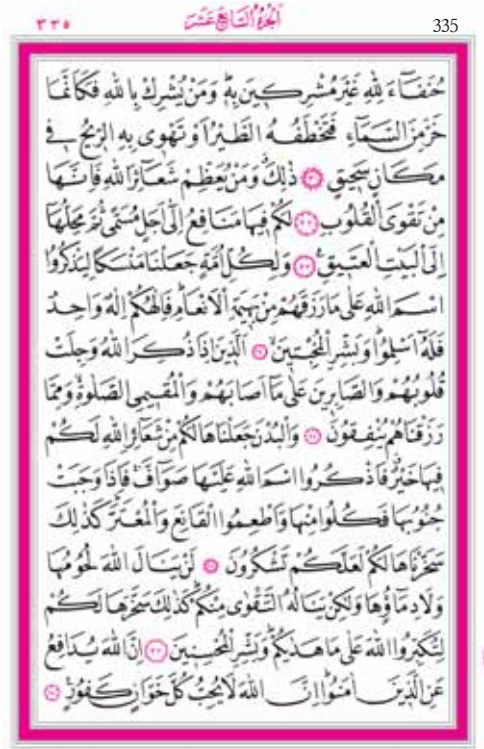 ٣٣٥ اَلْجُزْءُ السَّابِعَ عَشَرَ 335
حُنَفَٓاءَ لِلّٰهِ غَيْرَ مُشْرِكٖينَ بِهٖ وَمَنْ يُشْرِكْ بِاللّٰهِ فَكَاَنَّمَا
خَرَّ مِنَ السَّمَٓاءِ فَتَخْطَفُهُ الطَّيْرُ اَوْ تَهْوٖى بِهِ الرّٖيحُ فٖى
مَكَانٍ سَحٖيقٍ ﴿٣١﴾ ذٰلِكَ وَمَنْ يُعَظِّمْ شَعَٓائِرَ اللّٰهِ فَاِنَّهَا
مِنْ تَقْوَى الْقُلُوبِ ﴿٣٢﴾ لَكُمْ فٖيهَا مَنَافِعُ اِلٰٓى اَجَلٍ مُسَمًّى ثُمَّ مَحِلُّهَٓا
اِلَى الْبَيْتِ الْعَتٖيقِ ﴿٣٣﴾ وَلِكُلِّ اُمَّةٍ جَعَلْنَا مَنْسَكًا لِيَذْكُرُوا
اسْمَ اللّٰهِ عَلٰى مَا رَزَقَهُمْ مِنْ بَهٖيمَةِ الْاَنْعَامِ فَاِلٰهُكُمْ اِلٰهٌ وَاحِدٌ
فَلَهُٓ اَسْلِمُوا وَبَشِّرِ الْمُخْبِتٖينَ ﴿٣٤﴾ اَلَّذٖينَ اِذَا ذُكِرَ اللّٰهُ وَجِلَتْ
قُلُوبُهُمْ وَالصَّابِرٖينَ عَلٰى مَٓا اَصَابَهُمْ وَالْمُقٖيمِى الصَّلٰوةِ وَمِمَّا
رَزَقْنَاهُمْ يُنْفِقُونَ ﴿٣٥﴾ وَالْبُدْنَ جَعَلْنَاهَا لَكُمْ مِنْ شَعَٓائِرِ اللّٰهِ لَكُمْ
فٖيهَا خَيْرٌ فَاذْكُرُوا اسْمَ اللّٰهِ عَلَيْهَا صَوَٓافَّ فَاِذَا وَجَبَتْ
جُنُوبُهَا فَكُلُوا مِنْهَا وَاَطْعِمُوا الْقَانِعَ وَالْمُعْتَرَّ كَذٰلِكَ
سَخَّرْنَاهَا لَكُمْ لَعَلَّكُمْ تَشْكُرُونَ ﴿٣٦﴾ لَنْ يَنَالَ اللّٰهَ لُحُومُهَا
وَلَا دِمَٓاؤُهَا وَلٰكِنْ يَنَالُهُ التَّقْوٰى مِنْكُمْ كَذٰلِكَ سَخَّرَهَا لَكُمْ
لِتُكَبِّرُوا اللّٰهَ عَلٰى مَا هَدٰيكُمْ وَبَشِّرِ الْمُحْسِنٖينَ ﴿٣٧﴾ اِنَّ اللّٰهَ يُدَافِعُ
عَنِ الَّذٖينَ اٰمَنُوا اِنَّ اللّٰهَ لَا يُحِبُّ كُلَّ خَوَّانٍ كَفُورٍ ﴿٣٨﴾